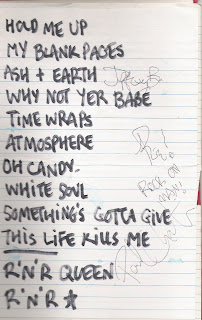 HOLD ME UP
MY BLANK PAGES
ASH + EARTH
WHY NOT YER BABE
TIME WRAPS
ATMOSPHERE
OH CANDY.
WHITE SOUL
SOMETHING'S GOTTA GIVE
THIS LIFE KILLS ME
R'N'R QUEEN
R'N'R ★
ROCK ON